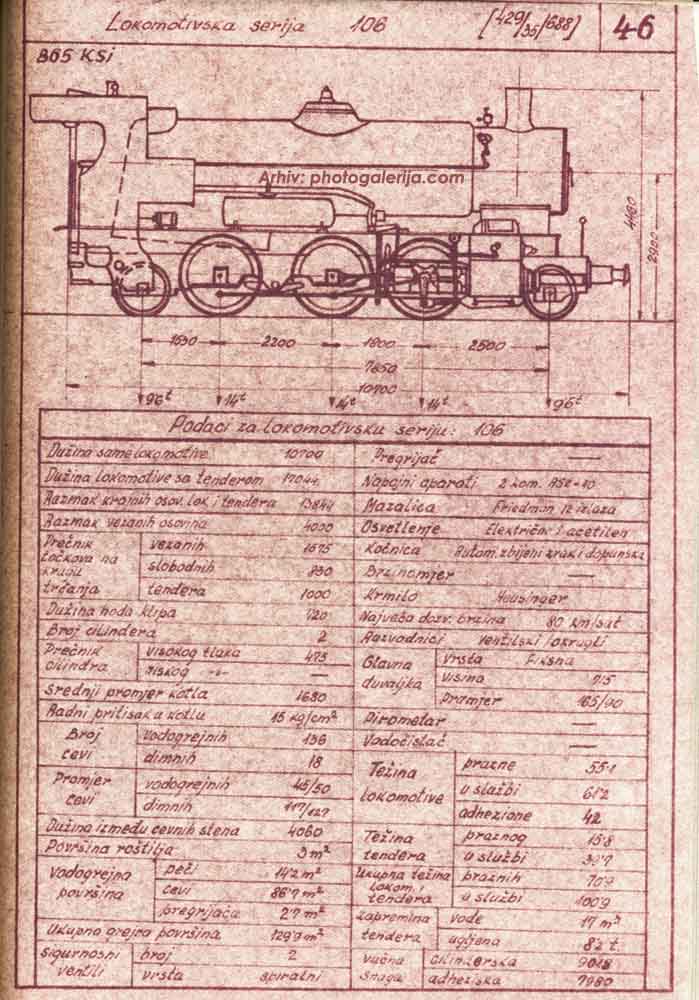 Lokomotivska serija 106 [429/35/688] 46
Arhiv: photogalerija.com
4480
2900
1630 2200 1800 2500
7650
10700
14t 14t 14t
Podaci za lokomotivsku seriju: 106
Dužina same lokomotive 10700
Dužina lokomotive sa tenderom 17044
Razmak krajnih osov. lok i tendera 13844
Razmak vezanih osovina 4000
Prečnik točkova na krugu trčanja
vezanih 1575
slobodnih 830
tendera 1000
Dužina hoda klipa 720
Broj cilindera 2
Prečnik cilindra
visokog tlaka 475
niskog -"- —
srednji promjer kotla 1680
Radni pritisak u kotlu 15 kg/cm²
Broj cevi
vodogrejnih 136
dimnih 18
Promjer cevi
vodogrejnih 45/50
dimnih 117/127
Dužina između cevnih stena 4060
Površina roštilja 3 m²
Vodogrejna površina
peći 14'2 m²
cevi
pregrijača
Ukupna grejna površina
sigurnosni ventili
broj 2
vrsta spiralni
Pregrijač —
Napojni aparati 2 kom.
Mazalica Friedman 12 izlaza
Osvetlenje Električno i acetilen
Kočnica Autom. zbijeni zrak i dopunska
Brzinomjer —
Krmilo Heusinger
Najveća dozv. brzina 80 km/sat
Razvodnici ventilski / okrugli
Glavna duvaljka
Vrsta Fiksna
Visina
Promjer
Pirometar —
Vodočistač —
Težina lokomotive
prazne 55'1
u službi 61'2
adhezione 42
Težina tendera
praznog 15'8
u službi
Ukupna težina lokom. i tendera
praznih 70'9
u službi 100'9
Zapremina tendera
vode 17 m³
ugljena
vučna snaga
cilinderska
adheziska 7980